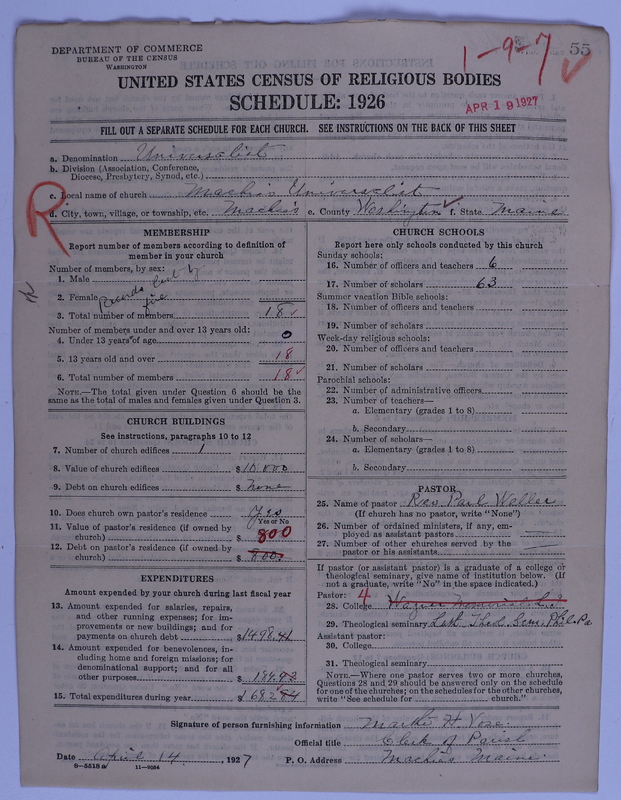 DEPARTMENT OF COMMERCE
BUREAU OF THE CENSUS
WASHINGTON
1-9-7
55
UNITED STATES CENSUS OF RELIGIOUS BODIES
SCHEDULE: 1926
APR 19 1927
FILL OUT A SEPARATE SCHEDULE FOR EACH CHURCH. SEE INSTRUCTIONS ON THE BACK OF THIS SHEET
a. Denomination Universalist
b. Division (Association, Conference, Diocese, Presbytery, Synod, etc.)
R
c. Local name of church Machias Universalist
d. City, town, village, or township, etc. Machias e. County Washington f. State Maine
MEMBERSHIP
Report number of members according to definition of member in your church
Number of members, by sex:
1. Male
2. Female
Records lost by fire
3. Total number of members 18
Number of members under and over 13 years old:
4. Under 13 years of age 0
5. 13 years old and over 18
6. Total number of members 18
NOTE.—The total given under Question 6 should be the same as the total of males and females given under Question 3.
CHURCH BUILDINGS
See instructions, paragraphs 10 to 12
7. Number of church edifices 1
8. Value of church edifices $10,000
9. Debt on church edifices $ None
10. Does church own pastor's residence Yes
Yes or No
11. Value of pastor's residence (if owned by church) $ 800
12. Debt on pastor's residence (if owned by church) $ 800
EXPENDITURES
Amount expended by church during last fiscal year
13. Amount expended for salaries, repairs, and other running expenses; for improvements or new buildings; and for payments on church debt $1498.41
14. Amount expended for benevolences, including home and foreign missions; for denominational support; and for all other purposes $ 184.43
15. Total expenditures during year $ 1682.84
CHURCH SCHOOLS
Report here only schools conducted by this church
Sunday schools:
16. Number of officers and teachers 6
17. Number of scholars 63
Summer vacation Bible schools:
18. Number of officers and teachers
19. Number of scholars
Week-day religious schools:
20. Number of officers and teachers
21. Number of scholars
Parochial schools:
22. Number of administrative officers
23. Number of teachers—
a. Elementary (grades 1 to 8)
b. Secondary
24. Number of scholars—
a. Elementary (grades 1 to 8)
b. Secondary
PASTOR
25. Name of pastor Rev Paul Weller
(If church has no pastor, write "None")
26. Number of ordained ministers, if any, employed as assistant pastors
27. Number of other churches served by the pastor or his assistants
If pastor (or assistant pastor) is a graduate of a college or theological seminary, give name of institution below. (If not a graduate, write "No" in the space indicated.)
Pastor: 4
28. College Wagner Memorial
29. Theological seminary Luth. Theol. Sem. Phil. Pa
Assistant pastor:
30. College
31. Theological seminary
NOTE.—Where one pastor serves two or more churches, Questions 28 and 29 should be answered only on the schedule for one of the churches; on the schedules for the other churches, write "See schedule for church."
Signature of person furnishing information
Official title Clerk of Parish
Date April 14, 1927 P. O. Address Machias Maine.
8-5518 a 11-9064